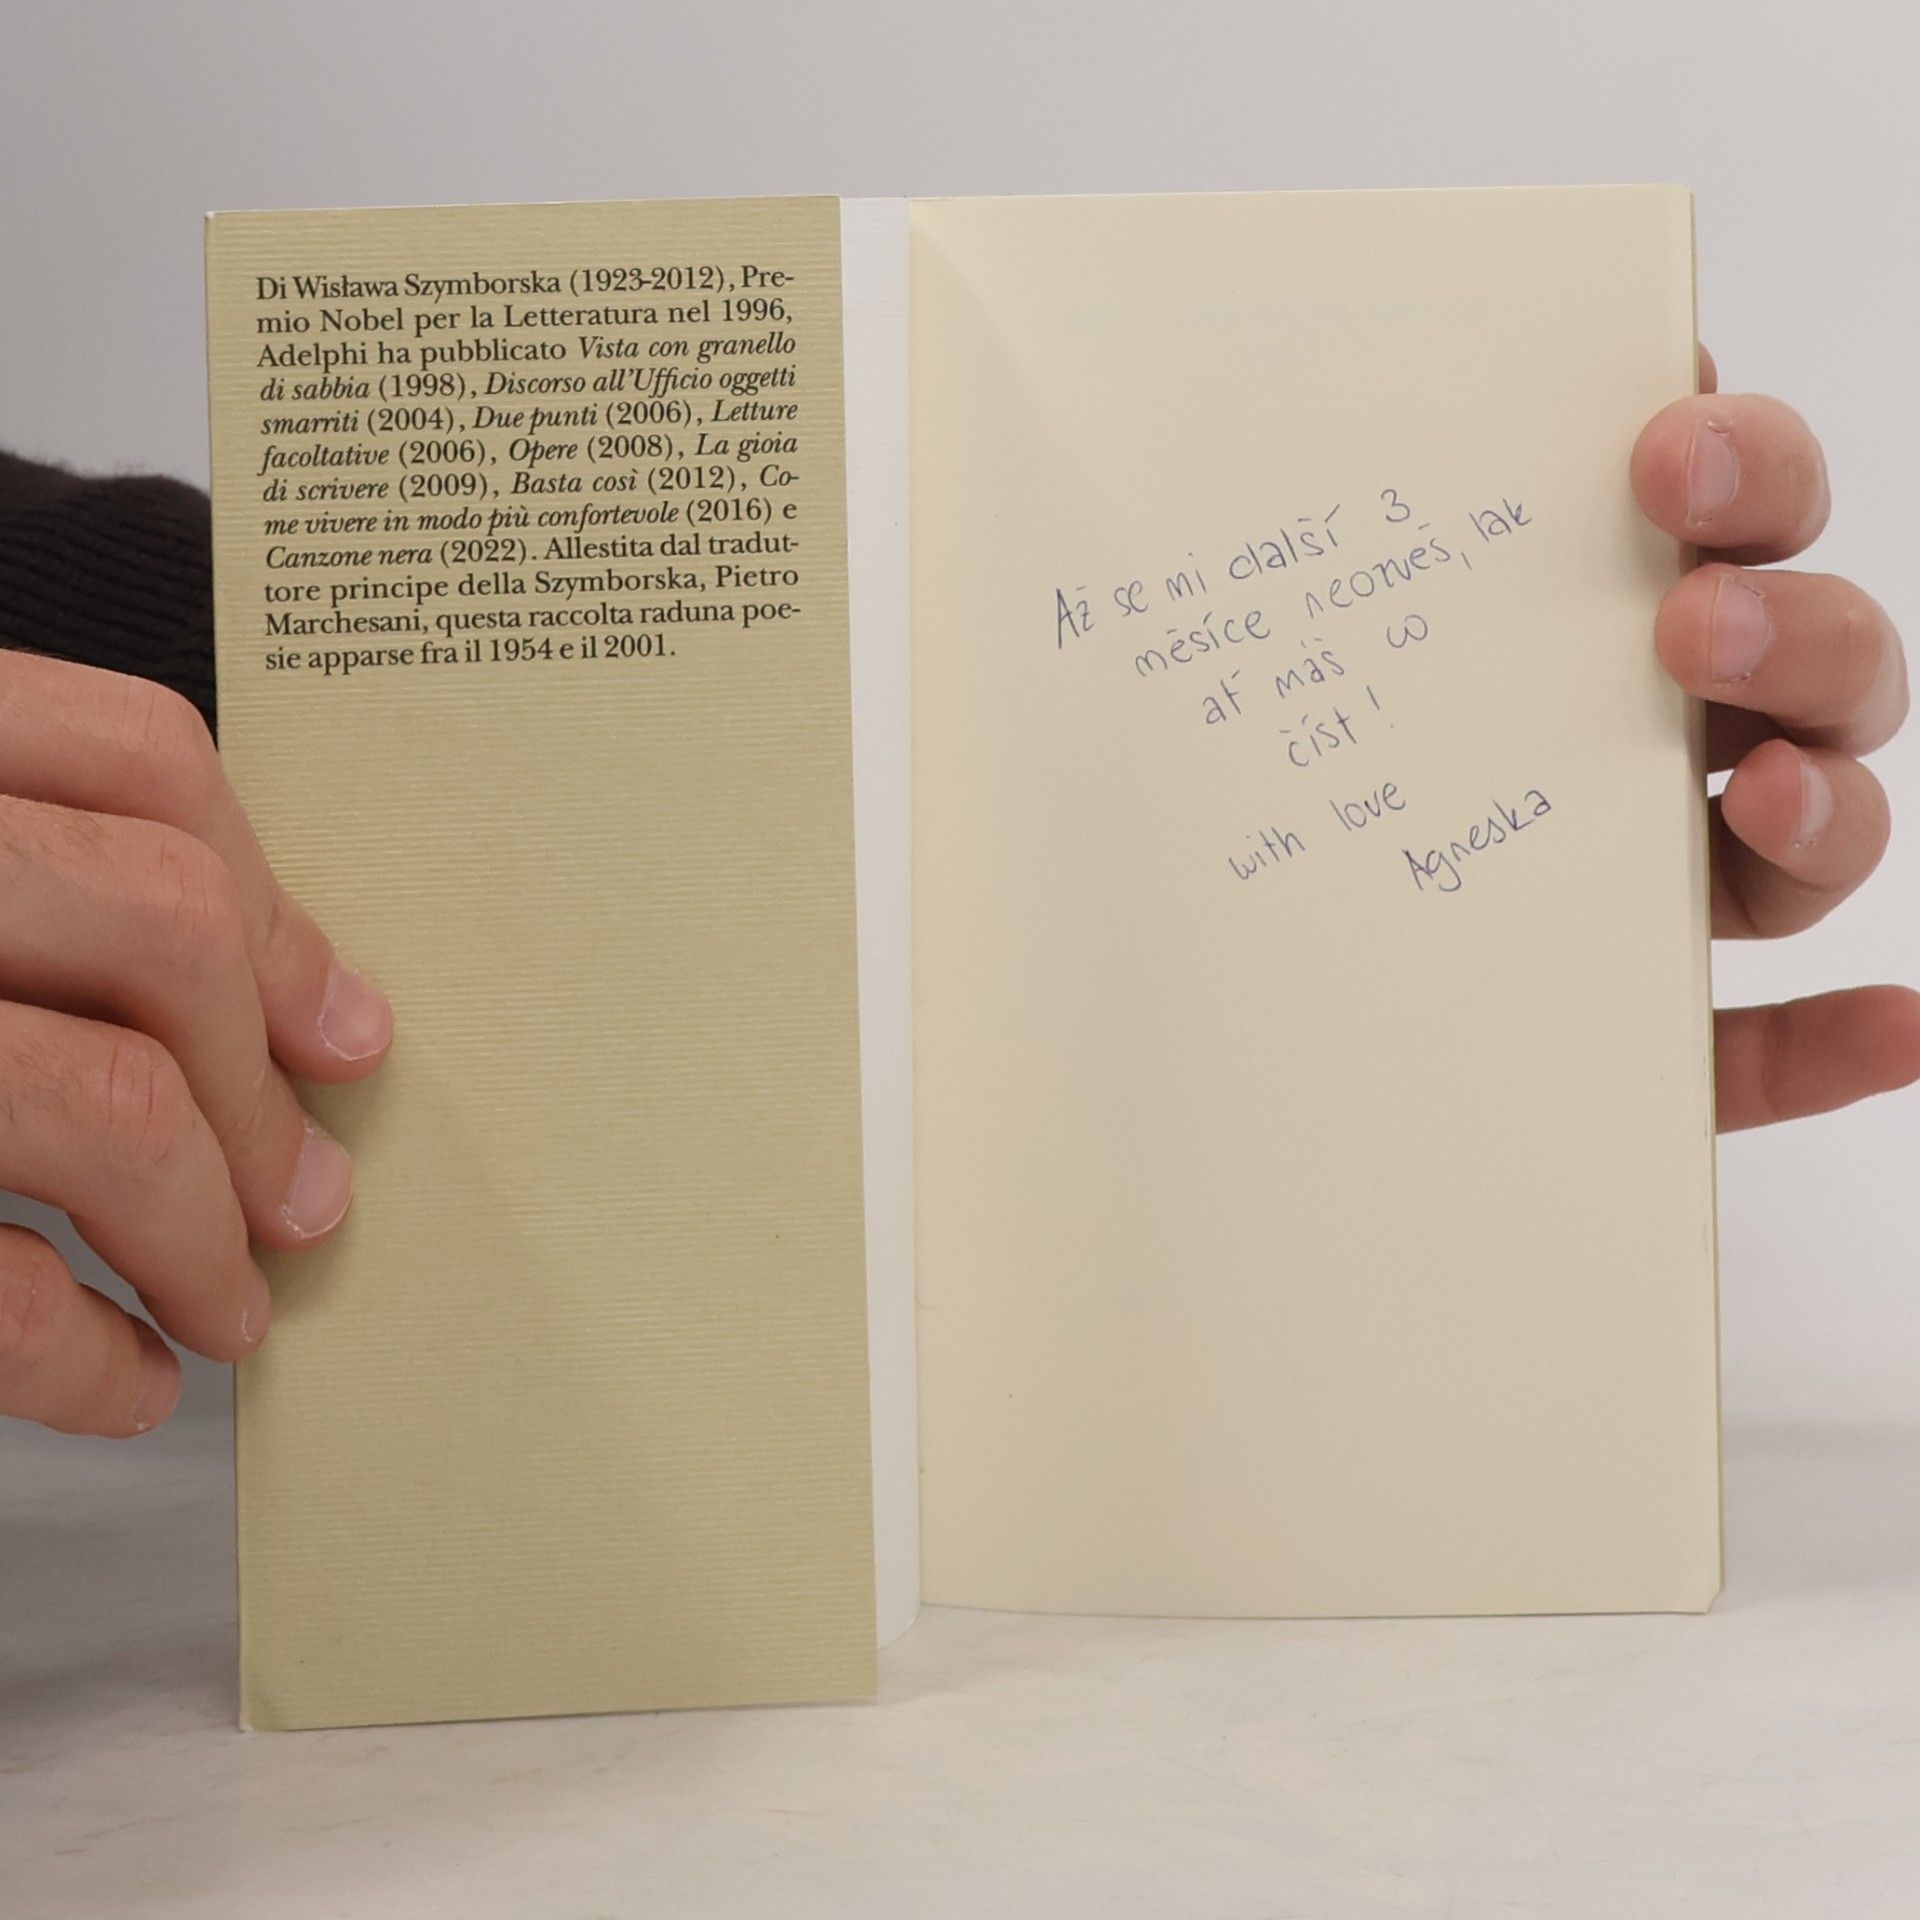 Di Wisława Szymborska (1923-2012), Pre-
mio Nobel per la Letteratura nel 1996,
Adelphi ha pubblicato Vista con granello
di sabbia (1998), Discorso all'Ufficio oggetti
smarriti (2004), Due punti (2006), Letture
facoltative (2006), Opere (2008), La gioia
di scrivere (2009), Basta così (2012), Co-
me vivere in modo più confortevole (2016) e
Canzone nera (2022). Allestita dal tradut-
tore principe della Szymborska, Pietro
Marchesani, questa raccolta raduna poe-
sie apparse fra il 1954 e il 2001.
Až se mi další 3
měsíce neozveš, tak
ať máš co
číst!
with love
Agneska